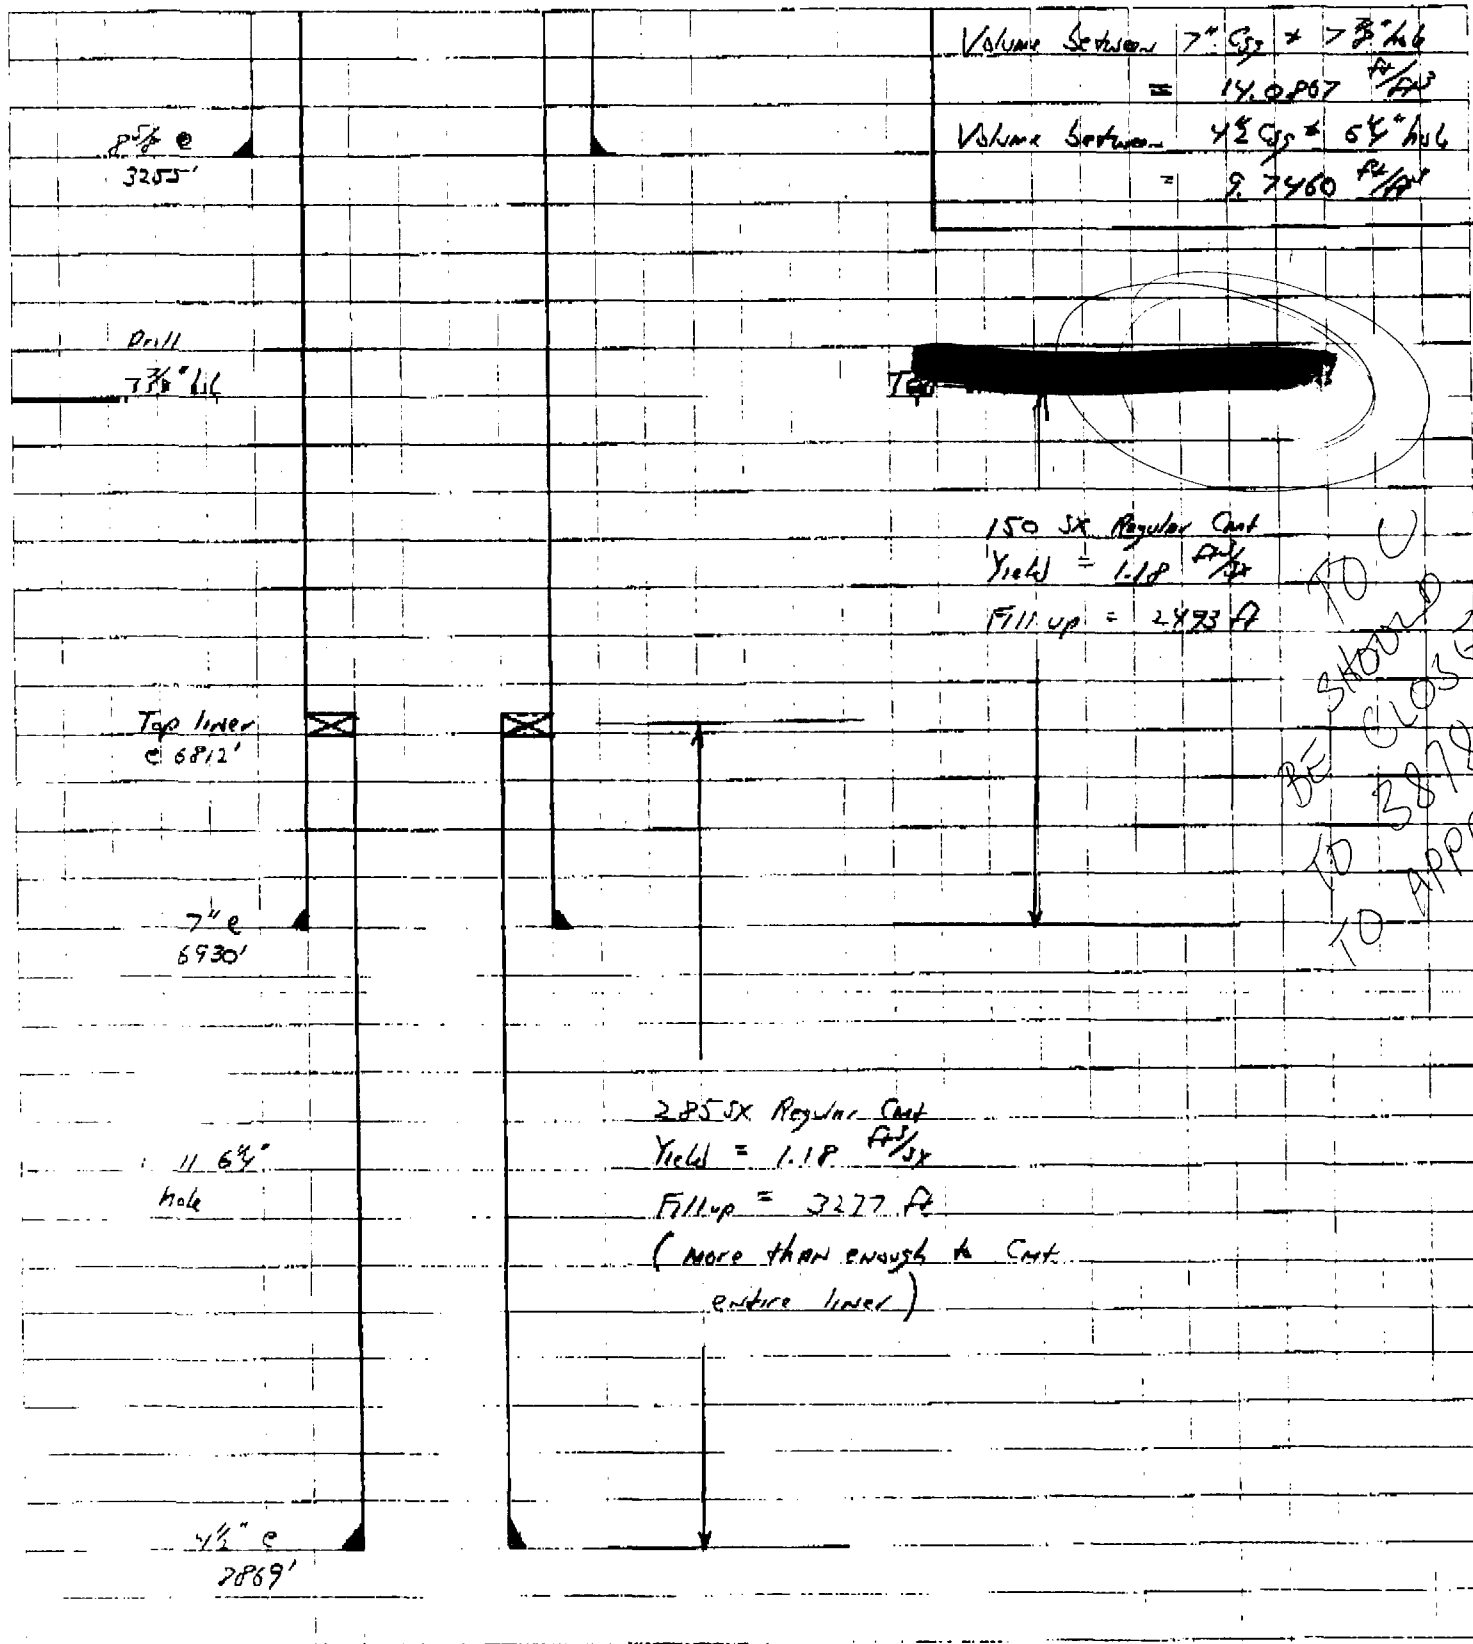 Volume between 7" Csg & 7 7/8" hole
= 14.0867 ft/ft³
Volume between 4½ Csg & 6¼" hole
= 9.7460 ft/ft³
8 5/8 @
3255'
Drill
7 7/8" hole
Top
150 SX Regular Cmt
Yield = 1.18 ft³/sx
Fill up = 2493 ft
TO C
SHOULD
BE CLOSE
TO 387
TO APP
Top liner
@ 6812'
7" @
6930'
285 SX Regular Cmt
Yield = 1.18 ft³/sx
Fill up = 3277 ft
(more than enough to Cmt
entire liner)
ll 6¼"
hole
4½" @
7869'